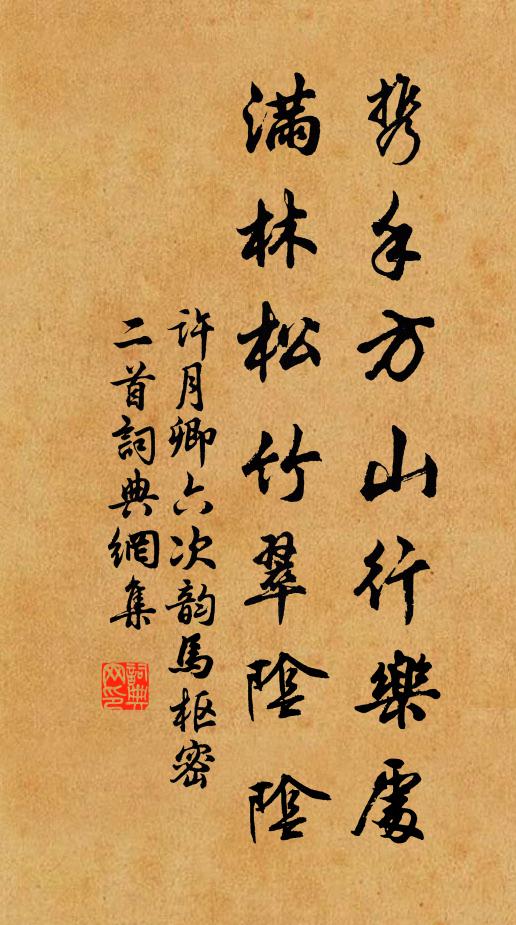 携手方山行樂處
滿林松竹翠陰陰
許月卿六次韵馬枢密
二首詞典網集
詞典网印